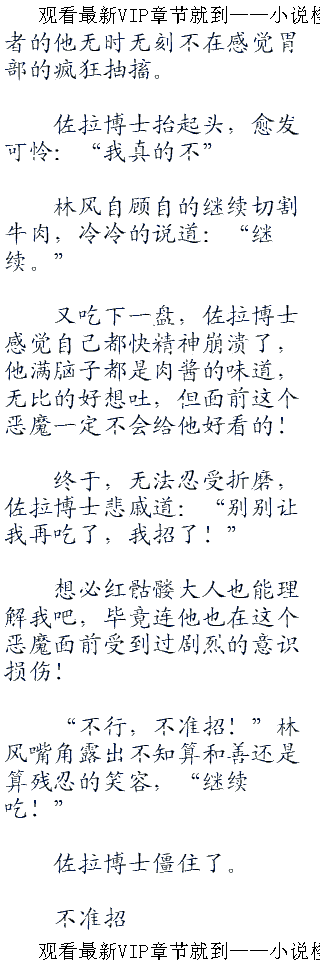 观看最新VIP章节就到——小说
者的他无时无刻不在感觉胃
部的疯狂抽搐。
佐拉博士抬起头，愈发
可怜：“我真的不”
林风自顾自的继续切割
牛肉，冷冷的说道：“继
续。”
又吃下一盘，佐拉博士
感觉自己都快精神崩溃了，
他满脑子都是肉酱的味道，
无比的好想吐，但面前这个
恶魔一定不会给他好看的！
终于，无法忍受折磨，
佐拉博士悲戚道：“别别让
我再吃了，我招了！”
想必红骷髅大人也能理
解我吧，毕竟连他也在这个
恶魔面前受到过剧烈的意识
损伤！
“不行，不准招！”林
风嘴角露出不知算和善还是
算残忍的笑容，“继续
吃！”
佐拉博士僵住了。
不准招
观看最新VIP章节就到——小说